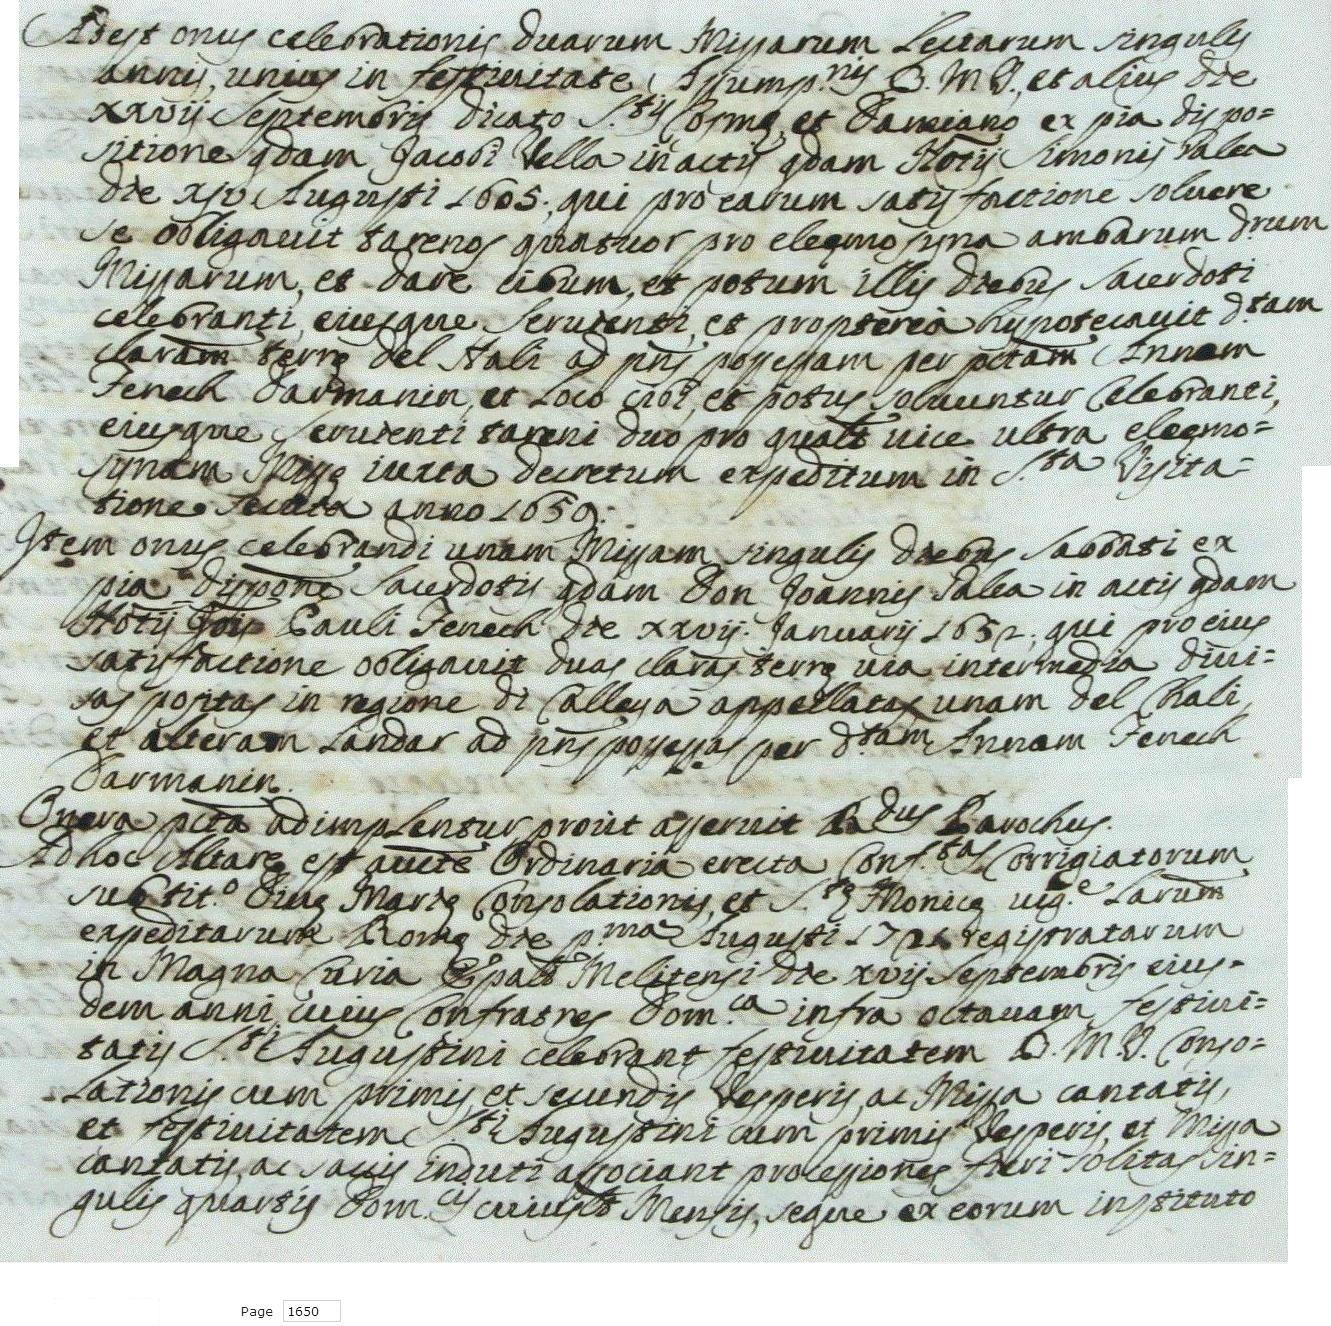 Adest onus celebrationis duarum Missarum Lectarum singulis
annis, unius in festiuitate Assump.nis B. M. V., et alius die
xxvij Septembris dicato S.tis Cosmę, et Damiano ex pia dispo=
sitione qdam Jacobi Vella in actis qdam Notij Simonis Galea
die xiv Augusti 1605; qui pro earum satisfactione soluere
se obligauit tarenos quatuor pro eleemosyna ambarum d.rum
Missarum, et dare cibum, et potum illis diebus Sacerdoti
celebranti, eiusque Seruienti, et propterea hypotecauit d.tam
claram terrę del Nali ad pns possessam per pctam Annam
Fenech Darmanin, et Loco cibi, et potus soluuntur Celebranti,
eiusque seruienti tareni duo pro qualt uice ultra eleemo=
synam Missę iuxta decretum expeditum in S.ta Visita=
tione secuta anno 1659.
Item onus celebrandi unam Missam singulis diebus Sabbati ex
pia dispone Sacerdotis qdam Don Joannis Galea in actis qdam
Notij Jois Pauli Fenech die xxvij Januarij ; qui pro eius
satisfactione obligauit duas claras terrę uia intermedia diui=
sas positas in regione di Calleya appellatas unam del Chali,
et alteram Landar ad pns possessas per d.tam Annam Fenech
Darmanin.
Onera pcta adimplentur prout asseruit R.dus Parochus.
Ad hoc Altare est aucte Ordinaria erecta Conf.tas Corrigiatorum
sub tit.o Diuę Marię Consolationis, et S.tę Monicę uig.e Larum
expeditarum Romę die p.ma Augusti registratarum
in Magna Curia Epali Melitensi die xvij Septembris eius=
dem anni cuius Confratres Dom.ca infra octauam festiui=
tatis S.ti Augustini celebrant festiuitatem B. M. V. Conso=
lationis cum primis, et secundis Vesperis, ac Missa cantatis,
et festiuitatem S.ti Augustini cum primis Vesperis, et Missa
cantatis, ac saccis induti associant processiones fieri solitas sin=
gulis quartis Dom.cis cuiuslt Mensis, seque ex eorum instituto
Page 1650